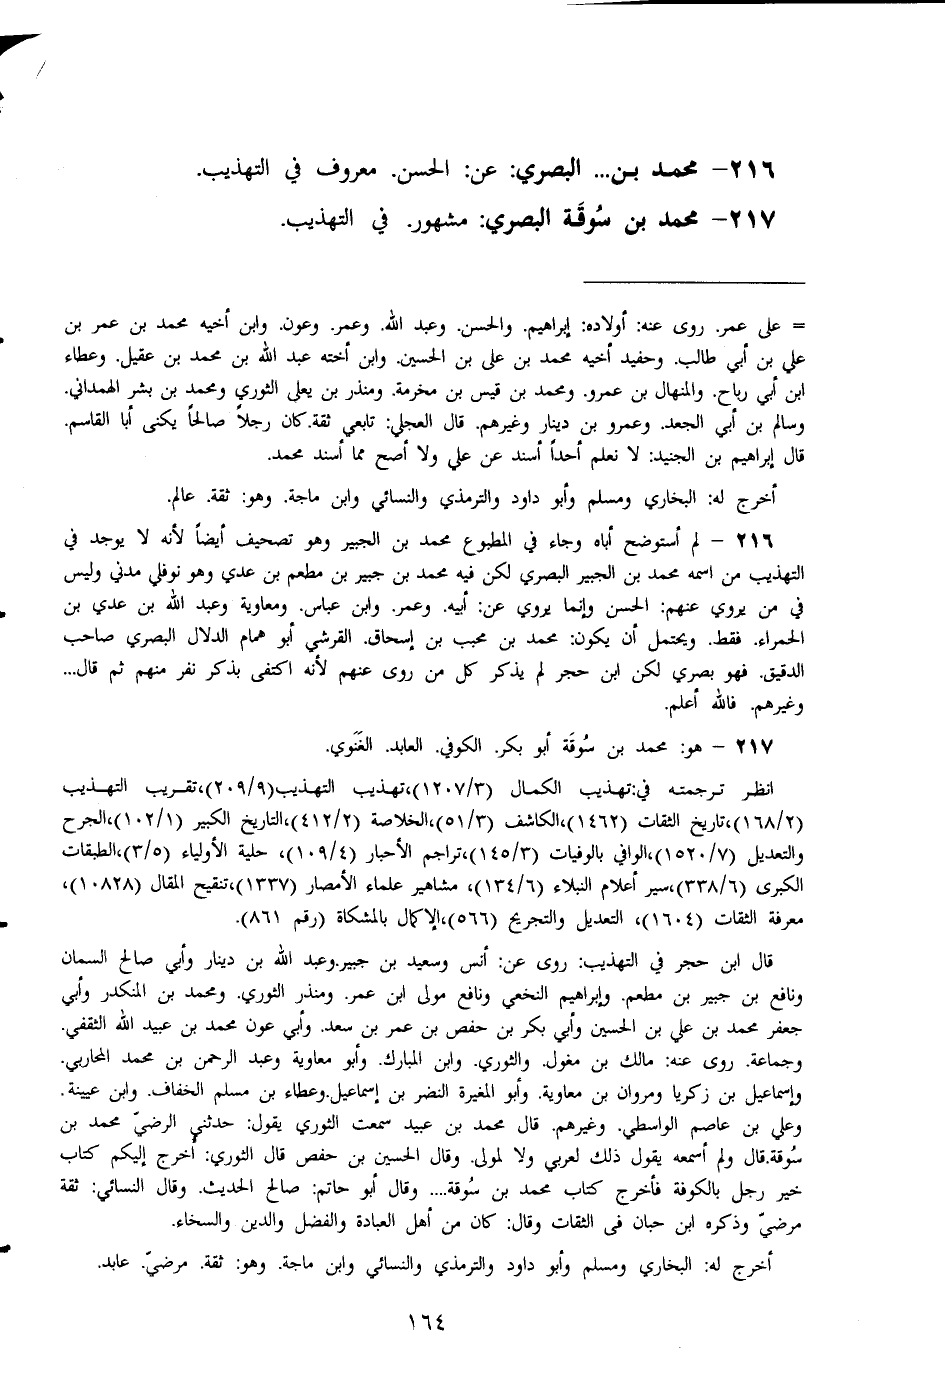 ٢١٦- محمد بن... البصري: عن: الحسن. معروف في التهذيب.
٢١٧- محمد بن سُوقَة البصري: مشهور. في التهذيب.
= على عمر. روى عنه: أولاده: إبراهيم. والحسن. وعبد الله. وعمر. وعون. وابن أخيه محمد بن عمر بن
علي بن أبي طالب. وحفيد أخيه محمد بن على بن الحسين. وابن أخته عبد الله بن محمد بن عقيل. وعطاء
ابن أبي رباح. والمنهال بن عمرو. ومحمد بن قيس بن مخرمة. ومنذر بن يعلى الثوري ومحمد بن بشر الهمداني.
وسالم بن أبي الجعد. وعمرو بن دينار وغيرهم. قال العجلي: تابعي ثقة.كان رجلاً صالحاً يكنى أبا القاسم.
قال إبراهيم بن الجنيد: لا نعلم أحداً أسند عن علي ولا أصح مما أسند محمد.
أخرج له: البخاري ومسلم وأبو داود والترمذي والنسائي وابن ماجة. وهو: ثقة. عالم.
٢١٦ - لم أستوضح أباه وجاء في المطبوع محمد بن الجبير وهو تصحيف أيضاً لأنه لا يوجد في
التهذيب من اسمه محمد بن الجبير البصري لكن فيه محمد بن جبير بن مطعم بن عدي وهو نوفلي مدني وليس
في من يروي عنهم: الحسن وإنما يروي عن: أبيه. وعمر. وابن عباس. ومعاوية وعبد الله بن عدي بن
الحمراء. فقط. ويحتمل أن يكون: محمد بن محبب بن إسحاق. القرشي أبو همام الدلال البصري صاحب
الدقيق. فهو بصري لكن ابن حجر لم يذكر كل من روى عنهم لأنه اكتفى بذكر نفر منهم ثم قال...
وغيرهم. فالله أعلم.
٢١٧ - هو: محمد بن سُوقَة أبو بكر. الكوفي. العابد. الغَنَوي.
انظر ترجمته في:تهذيب الكمال (١٢٠٧/٣)،تهذيب التهذيب(٢٠٩/٩)،تقريب التهذيب
(١٦٨/٢)،تاريخ الثقات (١٤٦٢)،الكاشف (٥١/٣)،الخلاصة (٤١٢/٢)،التاريخ الكبير (١٠٢/١)،الجرح
والتعديل (١٥٢٠/٧)،الوافي بالوفيات (١٤٥/٣)،تراجم الأحبار (١٠٩/٤)، حلية الأولياء (٣/٥)،الطبقات
الكبرى (٣٣٨/٦)،سير أعلام النبلاء (١٣٤/٦)، مشاهير علماء الأمصار (١٣٣٧)،تنقيح المقال (١٠٨٢٨)،
معرفة الثقات (١٦٠٤)، التعديل والتجريح (٥٦٦)،الإكمال بالمشكاة (رقم ٨٦١).
قال ابن حجر في التهذيب: روى عن: أنس وسعيد بن جبير.وعبد الله بن دينار وأبي صالح السمان
ونافع بن جبير بن مطعم. وإبراهيم النخعي ونافع مولى ابن عمر. ومنذر الثوري. ومحمد بن المنكدر وأبي
جعفر محمد بن علي بن الحسين وأبي بكر بن حفص بن عمر بن سعد. وأبي عون محمد بن عبيد الله الثقفي.
وجماعة. روى عنه: مالك بن مغول. والثوري. وابن المبارك. وأبو معاوية وعبد الرحمن بن محمد المحاربي.
وإسماعيل بن زكريا ومروان بن معاوية. وأبو المغيرة النضر بن إسماعيل.وعطاء بن مسلم الخفاف. وابن عيينة.
وعلي بن عاصم الواسطي. وغيرهم. قال محمد بن عبيد سمعت الثوري يقول: حدثني الرضيّ محمد بن
سُوقة.قال ولم أسمعه يقول ذلك لعربي ولا لمولى. وقال الحسين بن حفص قال الثوري: أخرج إليكم كتاب
خير رجل بالكوفة فأخرج كتاب محمد بن سُوقة.... وقال أبو حاتم: صالح الحديث. وقال النسائي: ثقة
مرضيّ وذكره ابن حبان فى الثقات وقال: كان من أهل العبادة والفضل والدين والسخاء.
أخرج له: البخاري ومسلم وأبو داود والترمذي والنسائي وابن ماجة. وهو: ثقة. مرضيّ. عابد.
١٦٤